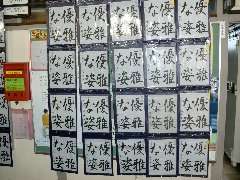 優雅
な姿
優雅
な姿
優雅
な姿
優雅
な姿
優雅
な姿
優雅
な姿
優雅
な姿
優雅
な姿
優雅
な姿
優雅
な姿
優雅
な姿
優雅
な姿
優雅
な姿
優雅
な姿
優雅
な姿
優雅
な姿
優雅
な姿
優雅
な姿
優雅
な姿
優雅
な姿